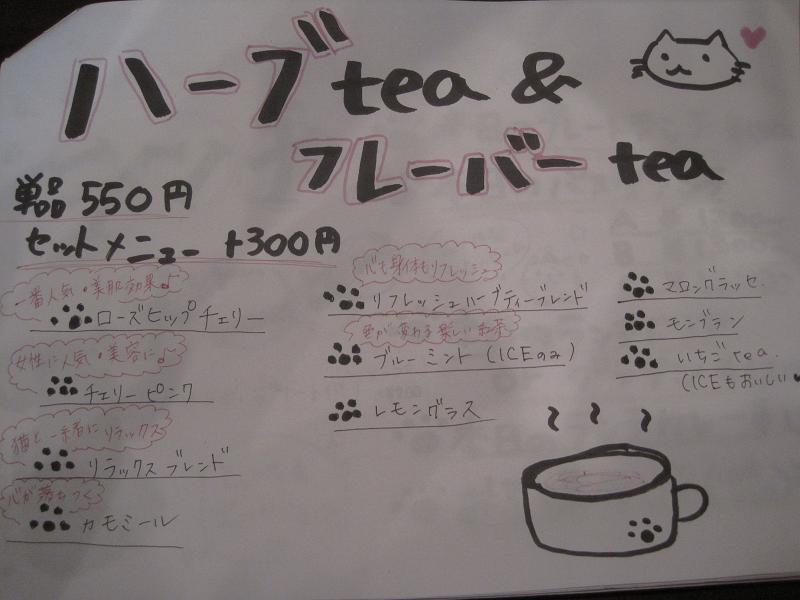 ハーブtea &
フレーバー tea
単品 550円
セットメニュー +300円
一番人気・美肌効果♪
ローズヒップチェリー
女性に人気・美容に♪
チェリーピンク
猫と一緒にリラックス
リラックスブレンド
心が落ちつく
カモミール
心も身体もリフレッシュ
リフレッシュハーブティーブレンド
色が変わる楽しいお茶
ブルーミント(ICEのみ)
レモングラス
マロングラッセ
モンブラン
いちごtea
(ICEもおいしい♥